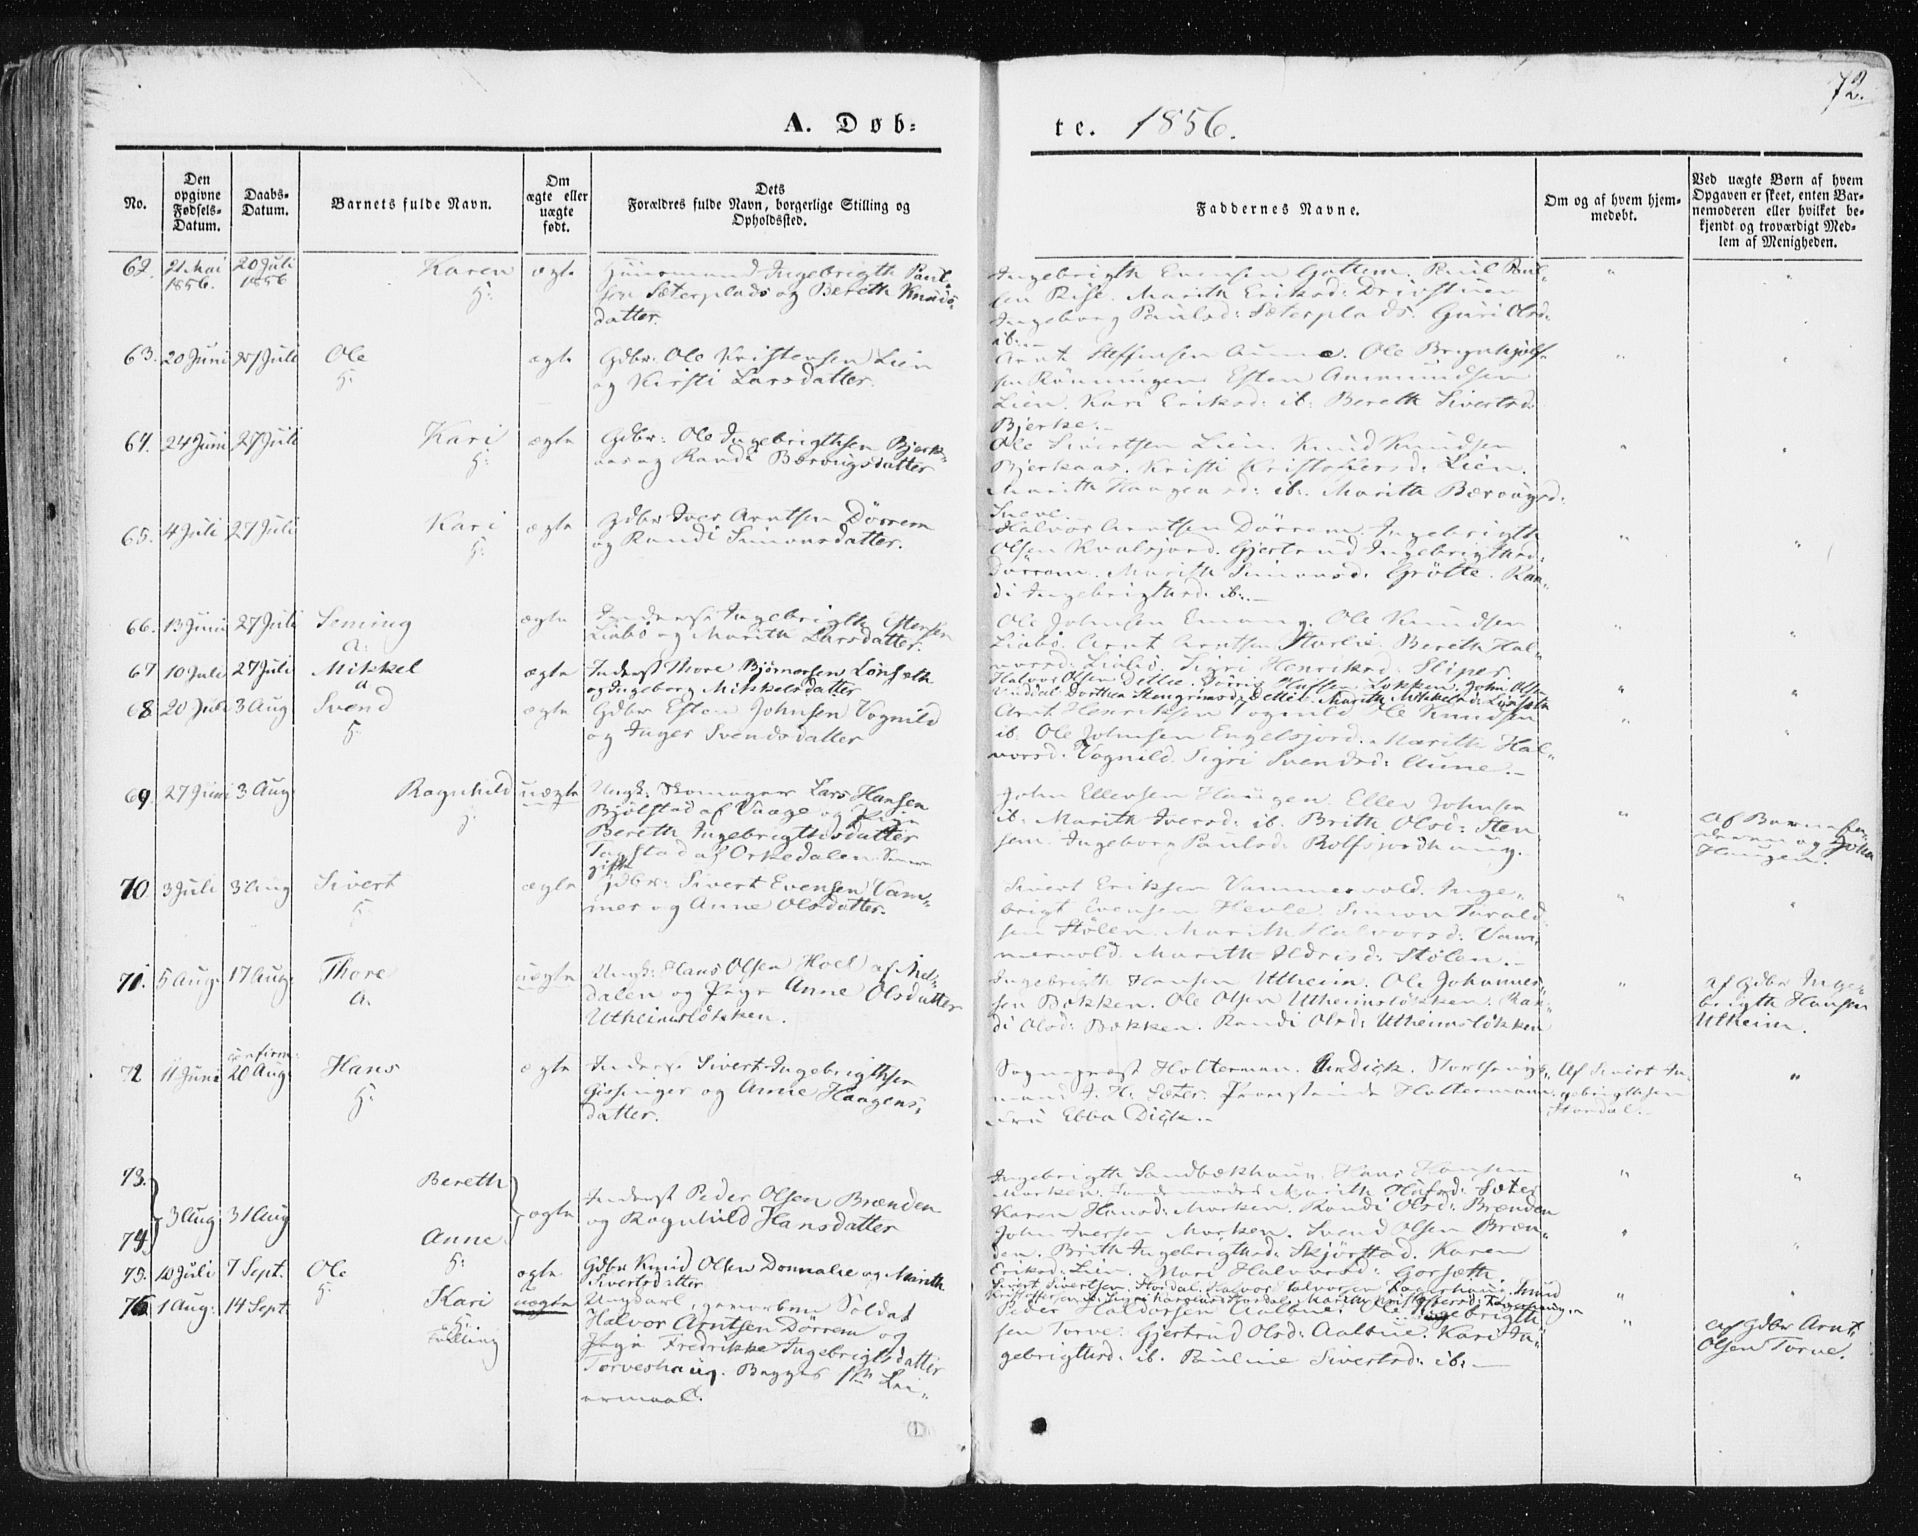 72.
A. Døb-
te. 1856.
No.
Den opgivne Fødsels-Datum.
Daabs-Datum.
Barnets fulde Navn.
Om ægte eller uægte født.
Dets Forældres fulde Navn, borgerlige Stilling og Opholdssted.
Faddernes Navne.
Om og af hvem hjem-medøbt.
Ved uægte Børn af hvem Opgaven er skeet, enten Bar-nemoderen eller hvilket be-kjendt og troværdigt Med-lem af Menigheden.
62. 21 Mai 20 Juli Karen ægte Huusmand Ingebrigth Paul-
1856. 1856 H: sen Sæterplads og Bereth Knuds-
datter.
Ingebrigth Evensen Gottem. Paul Paul-
sen Rise. Marith Eriksd: Drivstuen
Ingeborg Paulsd: Sæterplads. Guri Olsd:
ib:
63. 20 Juni 27 Juli Ole ægte Gdbr: Ole Kristensen Lien
H: og Kirsti Larsdatter.
Arnt Steffensen Aune. Ole Brynhjolf-
sen Rönningen Esten Amundsen
Lien. Kari Eriksd: ib: Bereth Sivertsd:
Bjerke.
64. 24 Juni 27 Juli Kari ægte Gdbr: Ole Ingebrigthsen Bjerk-
H: aas og Randi Bærougsdatter
Ole Sivertsen Lien. Knud Knudsen
Bjerkaas. Kristi Kristoffersd: Lien.
Marith Haagensd: ib:. Marith Bærougsd:
65. 4 Juli 27 Juli Kari ægte Gdbr Iver Arntsen Dörrem
H: og Randi Simonsdatter.
Halvor Arntsen Dörrem. Ingebrigth
Olsen Kvalsjord. Gjertrud Ingebrigthsd:
Dörrem. Marith Simonsd: Grötte. Ran-
di Ingebrigthsd: ib:
66. 13 Juni 27 Juli Seming ægte Inderst Ingebrigth Estensen
A: Liabö og Marith Larsdatter.
Ole Johnsen Emang. Ole Knudsen
Liabö. Arnt Arntsen Stuelie. Bereth Hal-
vorsd: Liabö. Sigri Henriksd: Slipes.
67 10 Juli 27 Juli Mikkel ægte Inderst Thore Bjørnersen Lönseth
A og Ingeborg Mikkelsdatter
Halvor Olsen Detlie. John Olsen
Vindal Dorthea Stengrimsd: Detlie. Marith Mikkelsd: Lönseth
68 20 Juli 3 Aug Svend ægte Gdbr Esten Johnsen Vognild
H: og Inger Svendsdatter
Arnt Henriksen Vognild Ole Knudsen
ib. Ole Johnsen Engelsjord. Marith Hal-
vorsd: Vognild. Sigri Svendsd: Aune.
69 27 Juni 3 Aug Ragnhild uægte Ungk: Skomager Lars Hansen
Bjølstad af Vaage og Pige
Bereth Ingebrigthsdatter
Tagstad af Orkedalen.
John Ellensen Haugen. Ellen Johnsd
ib: Marith Iversd: ib. Brith Olsd: Sten
Ingeborg Paulsd: Rolfsjordhaug.
Af Barnefa-
deren og John
Haugen.
70 3 Juli 3 Aug Sivert ægte Gdbr: Sivert Evensen Vam-
H: mer og Anne Olsdatter.
Sivert Eriksen Vammervold. Inge-
brigt Evensen Hevle. Simon Tarald
sen Stölen. Marith Halvorsd: Vam-
mervold. Marith Hdrisd: Stölen.
71. 5 Aug. 17 Aug: Thore uægte Ungk: Hans Olsen Hoel af Mel-
A. dalen og Pige Anne Olsdatter
Utheimsløkken.
Ingebrigth Hansen Utheim. Ole Johannes-
sen Bækken. Ole Olsen Utheimsløkken. Ran-
di Olsd: Bækken. Randi Olsd: Utheimsløkken
af Gdbr Inge-
brigth Hansen
Utheim.
72 11 Juni confirm: 20 Aug: Hans ægte Inderst Sivert Ingebrigthsen
H: Gissinger og Anne Haagens-
datter.
Sognepræst Holterman. Dick. Storthings-
mand J. H. Sæter. Provstinde Holtermann
Fru Ebba Dick.
Af Sivert In-
gebrigthsen
Stordal.
73. Bereth
3 Aug 31 Aug ægte Inderst Peder Olsen Brænden
og Ragnhild Hansdatter
74 Anne
H:
Ingebrigth Sandbækhaug. Hans Hansen
Morken. Marith Olufsd: Sæter
Karen Hansd: Morken. Randi Olsd: Brænden
John Iversen Morken. Svend Olsen Bræn-
den. Brith Ingebrigthsd: Skjörstad. Karen
Eriksd: Lien. Mari Halvorsd: Gorseth.
75. 10 Juli 7 Sept. Ole ægte Gdbr Knud Olsen Donnalie og Marith
H: Sivertsdatter
Sivert Sivertsen Stordal. Halvor Halvorsen Knud
76 1 Aug: 14 Sept. Kari uægte Ungkarl, gevorben Soldat
H: Halvor Arntsen Dörrem og
Tvilling Pige Fredrikke Ingebrigtsdatter
Torveshaug. Begges 1ste Lei-
ermaal.
Peder Haldorsen Aalbue. Ole Ingebrigth
sen Torve. Gjertrud Olsd: Aalbue. Kari In-
gebrigthsd: ib. Pauline Sivertsd: ib:
af Gdbr Arnt
Olsen Torve.